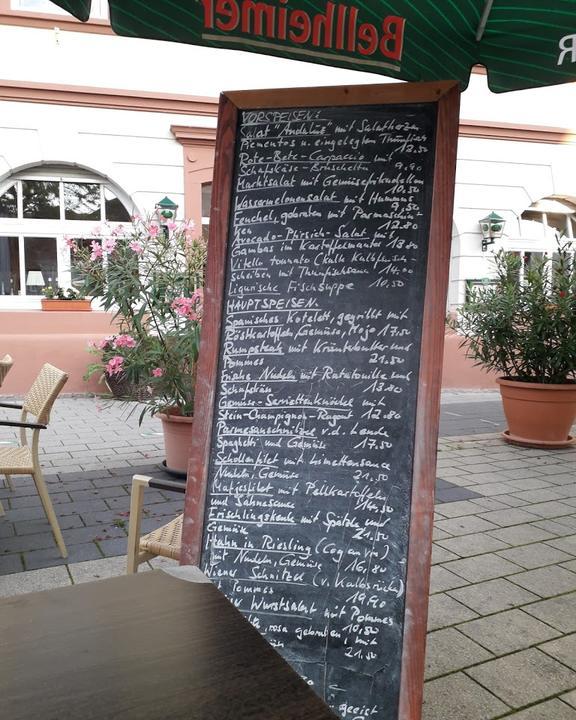 Bellheimer
VORSPEISEN:
Salat "Andaluz" mit Salatherzen
Pimentos u. eingelegten Thunfisch
12.50
Rote-Bete-Carpaccio mit
Schafskäse-Bruschetta 9,90
Marktsalat mit Gemüsefrikadellen
10,50
Wassermelonensalat mit Hummus
9,50
Fenchel, gebraten mit Parmaschin-
ken 12.80
Avocado-Pfirsich-Salat mit
Gambas im Kartoffelmantel 13.80
Vitello tonnato (Kalte Kalbfleisch-
scheiben mit Thunfischsauce 14,00
Ligurische Fischsuppe 10,50
HAUPTSPEISEN:
Spanisches Kotelett, gegrillt mit
Röstkartoffeln, Gemüse, Mojo 17.50
Rumpsteak mit Kräuterbutter und
Pommes 21.50
Frische Nudeln mit Ratatouille und
Schafskäse 13.80
Gemüse-Serviettenknödel mit
Stein-Champignon-Ragout 12.80
Parmesanschnitzel v.d. Lende
Spaghetti und Gemüse 17.50
Schollenfilet mit Limettensauce
Nudeln, Gemüse 21.50
Matjesfilet mit Pellkartoffeln
und Sahnesauce 14,50
Frischlingskeule mit Spätzle und
Gemüse 21.50
Hahn in Riesling (Coq au vin)
mit Nudeln, Gemüse 16,80
Wiener Schnitzel (v. Kalbsrücken)
Pommes 19,90
Wurstsalat mit Pommes
10,50
rosa gebraten, mit
21.50
geeist